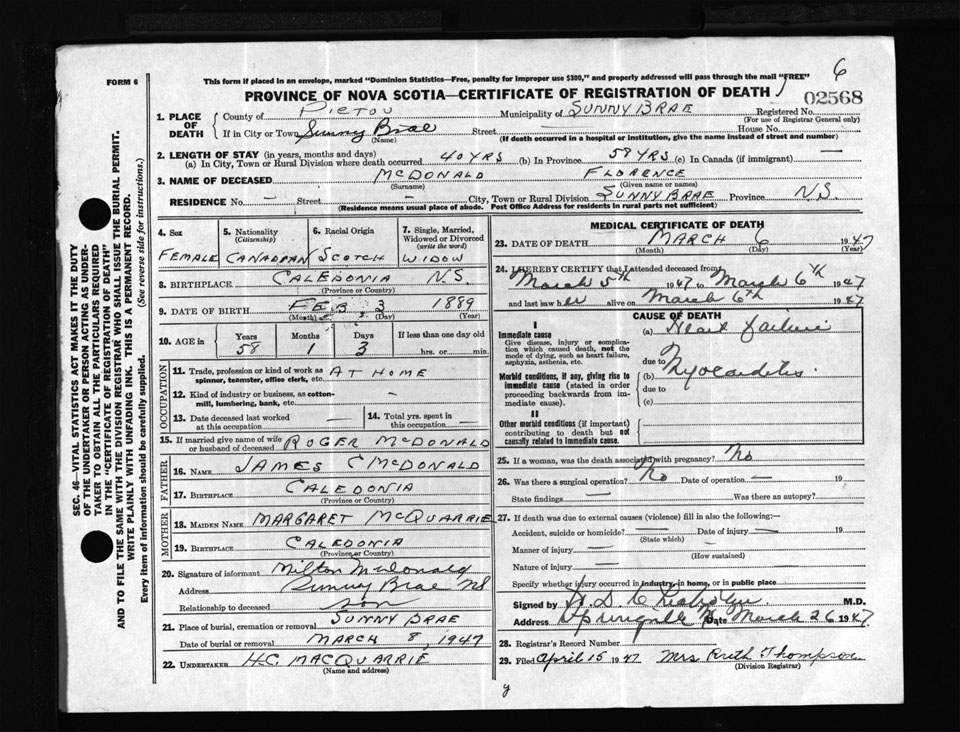 6
FORM 6
This form if placed in an envelope, marked "Dominion Statistics—Free, penalty for improper use $300," and properly addressed will pass through the mail "FREE"
PROVINCE OF NOVA SCOTIA—CERTIFICATE OF REGISTRATION OF DEATH
02568
1. PLACE OF DEATH
County of PICTOU Municipality of SUNNY BRAE Registered No.
(For use of Registrar General only)
If in City or Town Sunny Brae Street — House No.
(Name) (If death occurred in a hospital or institution, give the name instead of street and number)
2. LENGTH OF STAY (in years, months and days)
(a) In City, Town or Rural Division where death occurred 40 YRS (b) In Province 58 YRS (c) In Canada (if immigrant) —
3. NAME OF DECEASED McDONALD FLORENCE
(Surname) (Given name or names)
RESIDENCE No. — Street — City, Town or Rural Division SUNNY BRAE Province N.S.
(Residence means usual place of abode. Post Office Address for residents in rural parts not sufficient)
4. Sex
FEMALE
5. Nationality
(Citizenship)
CANADIAN
6. Racial Origin
SCOTCH
7. Single, Married, Widowed or Divorced
(write the word)
WIDOW
8. BIRTHPLACE CALEDONIA N.S.
(Province or Country)
9. DATE OF BIRTH FEB 3 1889
(Month) (Year)
10. AGE in
Years
58
Months
1
Days
3
If less than one day old
hrs. or min.
OCCUPATION
11. Trade, profession or kind of work as spinner, teamster, office clerk, etc. AT HOME
12. Kind of industry or business, as cotton-mill, lumbering, bank, etc. —
13. Date deceased last worked at this occupation —
14. Total yrs. spent in this occupation —
15. If married give name of wife or husband of deceased ROGER McDONALD
FATHER
16. NAME JAMES C McDONALD
17. BIRTHPLACE CALEDONIA
(Province or Country)
MOTHER
18. MAIDEN NAME MARGARET McQUARRIE
19. BIRTHPLACE CALEDONIA
(Province or Country)
20. Signature of informant Milton McDonald
Address Sunny Brae NS
Relationship to deceased son
21. Place of burial, cremation or removal SUNNY BRAE
Date of burial or removal MARCH 8, 1947
22. UNDERTAKER H.C. MACQUARRIE
(Name and address)
MEDICAL CERTIFICATE OF DEATH
23. DATE OF DEATH MARCH 6 1947
(Month) (Day) (Year)
24. I HEREBY CERTIFY that I attended deceased from
March 5th 1947 to March 6th 1947
and last saw her alive on March 6th 1947
CAUSE OF DEATH
I
Immediate cause
Give disease, injury or complication which caused death, not the mode of dying, such as heart failure, asphyxia, asthenia, etc.
(a) Heart failure
due to
Morbid conditions, if any, giving rise to immediate cause (stated in order proceeding backwards from immediate cause).
(b) Myocarditis.
due to
(c)
II
Other morbid conditions (if important) contributing to death but not causally related to immediate cause.
25. If a woman, was the death associated with pregnancy? No
26. Was there a surgical operation? No Date of operation — 19
State findings — Was there an autopsy?
27. If death was due to external causes (violence) fill in also the following:—
Accident, suicide or homicide? — Date of injury — 19
(State which)
Manner of injury —
(How sustained)
Nature of injury —
Specify whether injury occurred in industry, in home, or in public place
Signed by M.D.
Address Date March 26 1947
28. Registrar's Record Number
29. Filed April 15 1947 Mrs Ruth Thompson
(Division Registrar)
y
SEC. 46—VITAL STATISTICS ACT MAKES IT THE DUTY
OF THE UNDERTAKER OR PERSON ACTING AS UNDER-
TAKER TO OBTAIN ALL THE PARTICULARS REQUIRED
IN THE "CERTIFICATE OF REGISTRATION OF DEATH"
AND TO FILE THE SAME WITH THE DIVISION REGISTRAR WHO SHALL ISSUE THE BURIAL PERMIT.
WRITE PLAINLY WITH UNFADING INK. THIS IS A PERMANENT RECORD.
Every item of information should be carefully supplied. (See reverse side for instructions.)